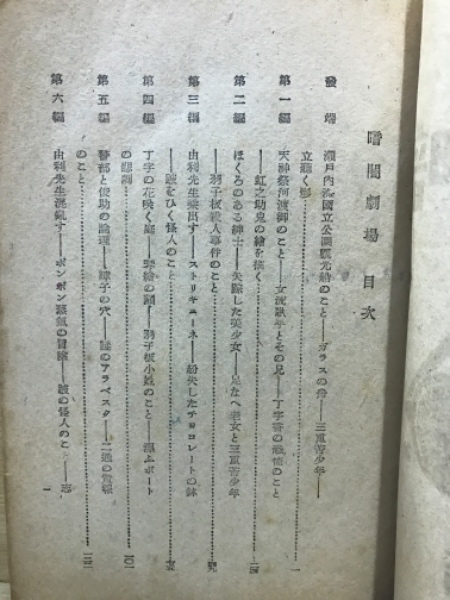 暗闇劇場 目次
發端 瀬戸内海國立公園觀光船のこと——ガラスの舟——三重苦少年——
立聽く影 一
第一編 天神祭河渡御のこと——女流歌手とその兄——丁字香の
のこと
——紅之助鬼の繪を描く 二四
第二編 ほくろのある紳士——失踪した美少女——足なへ老女と三重苦少年
——羽子板殺人事件のこと
第三編 由利先生乘出す——ストリキニーネ——紛失したチョコレートの鉢
——跛をひく怪人のこと
第四編 丁字の花咲く庭——羽子板小姓のこと——ボート
の悲劇 一〇一
第五編 警部と俊助の論理——障子の穴——謎のアラベスク——二通の電報
のこと
第六編 由利先生混亂す——ポンポン蒸氣の冒險——跛の怪人のこと——